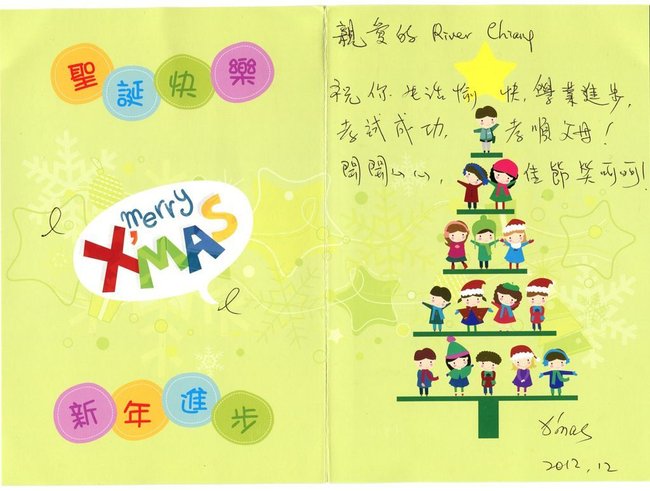 聖誕快樂
merry
X'MAS
新年進步
親愛的 River Chiang
祝你生活愉快, 學業進步,
考試成功, 孝順父母!
開開心心, 佳節笑呵呵!
X'mas
2012.12